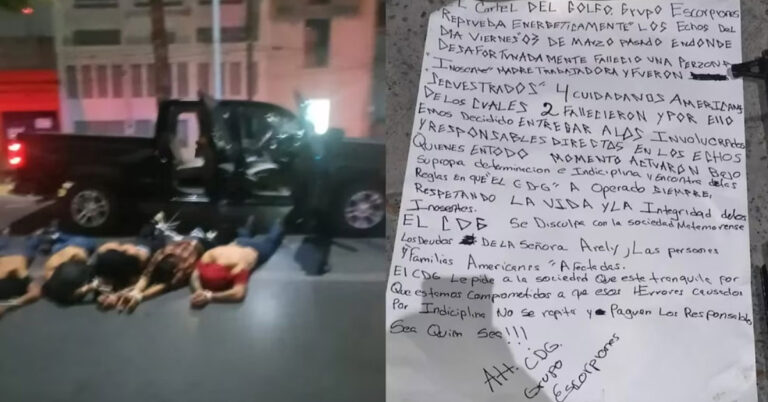 El Cartel DEL GOLFO. Grupo Escorpiones
REPRUEBA ENERGETICAMENTE" LOS Echos Del
DIA VIERNES" 03 DE MARZO PASADO EN DONDE
DESAFORTUNADAMENTE FALLECIO UNA PERZONA
INOSENTE MADRE TRABAJADORA Y FUERON
SECUESTRADOS" 4 CUIDADANOS AMERICANOS
DE LOS CUALES 2 FALLECIERON Y POR ELLO
EMOS Decidido ENTREGAR A LOS Involucrados
Y RESPONSABLES DIRECTOS EN LOS ECHOS
QUIENES EN TODO MOMENTO ACTUARON Bajo
su propia determinacion e Indiciplina y Encontra de las
Reglas EN QUE "EL CDG" A Operado SIEMPRE,
RESPETANDO LA VIDA Y LA Integridad de los
Inosentes.
EL CDG Se Disculpa con la sociedad Matamorense
Los Deudos DE LA Señora Arely, Las personas
y Familias Americanas "Afectadas.
El CDG Le pide a la sociedad Que este tranquila por
Que estamos comprometidos a que esos "Errores causados
Por Indiciplina No se repita y Paguen Los Responsables
Sea Quim Sea!!!
Att. CDG.
Grupo
Escorpiones